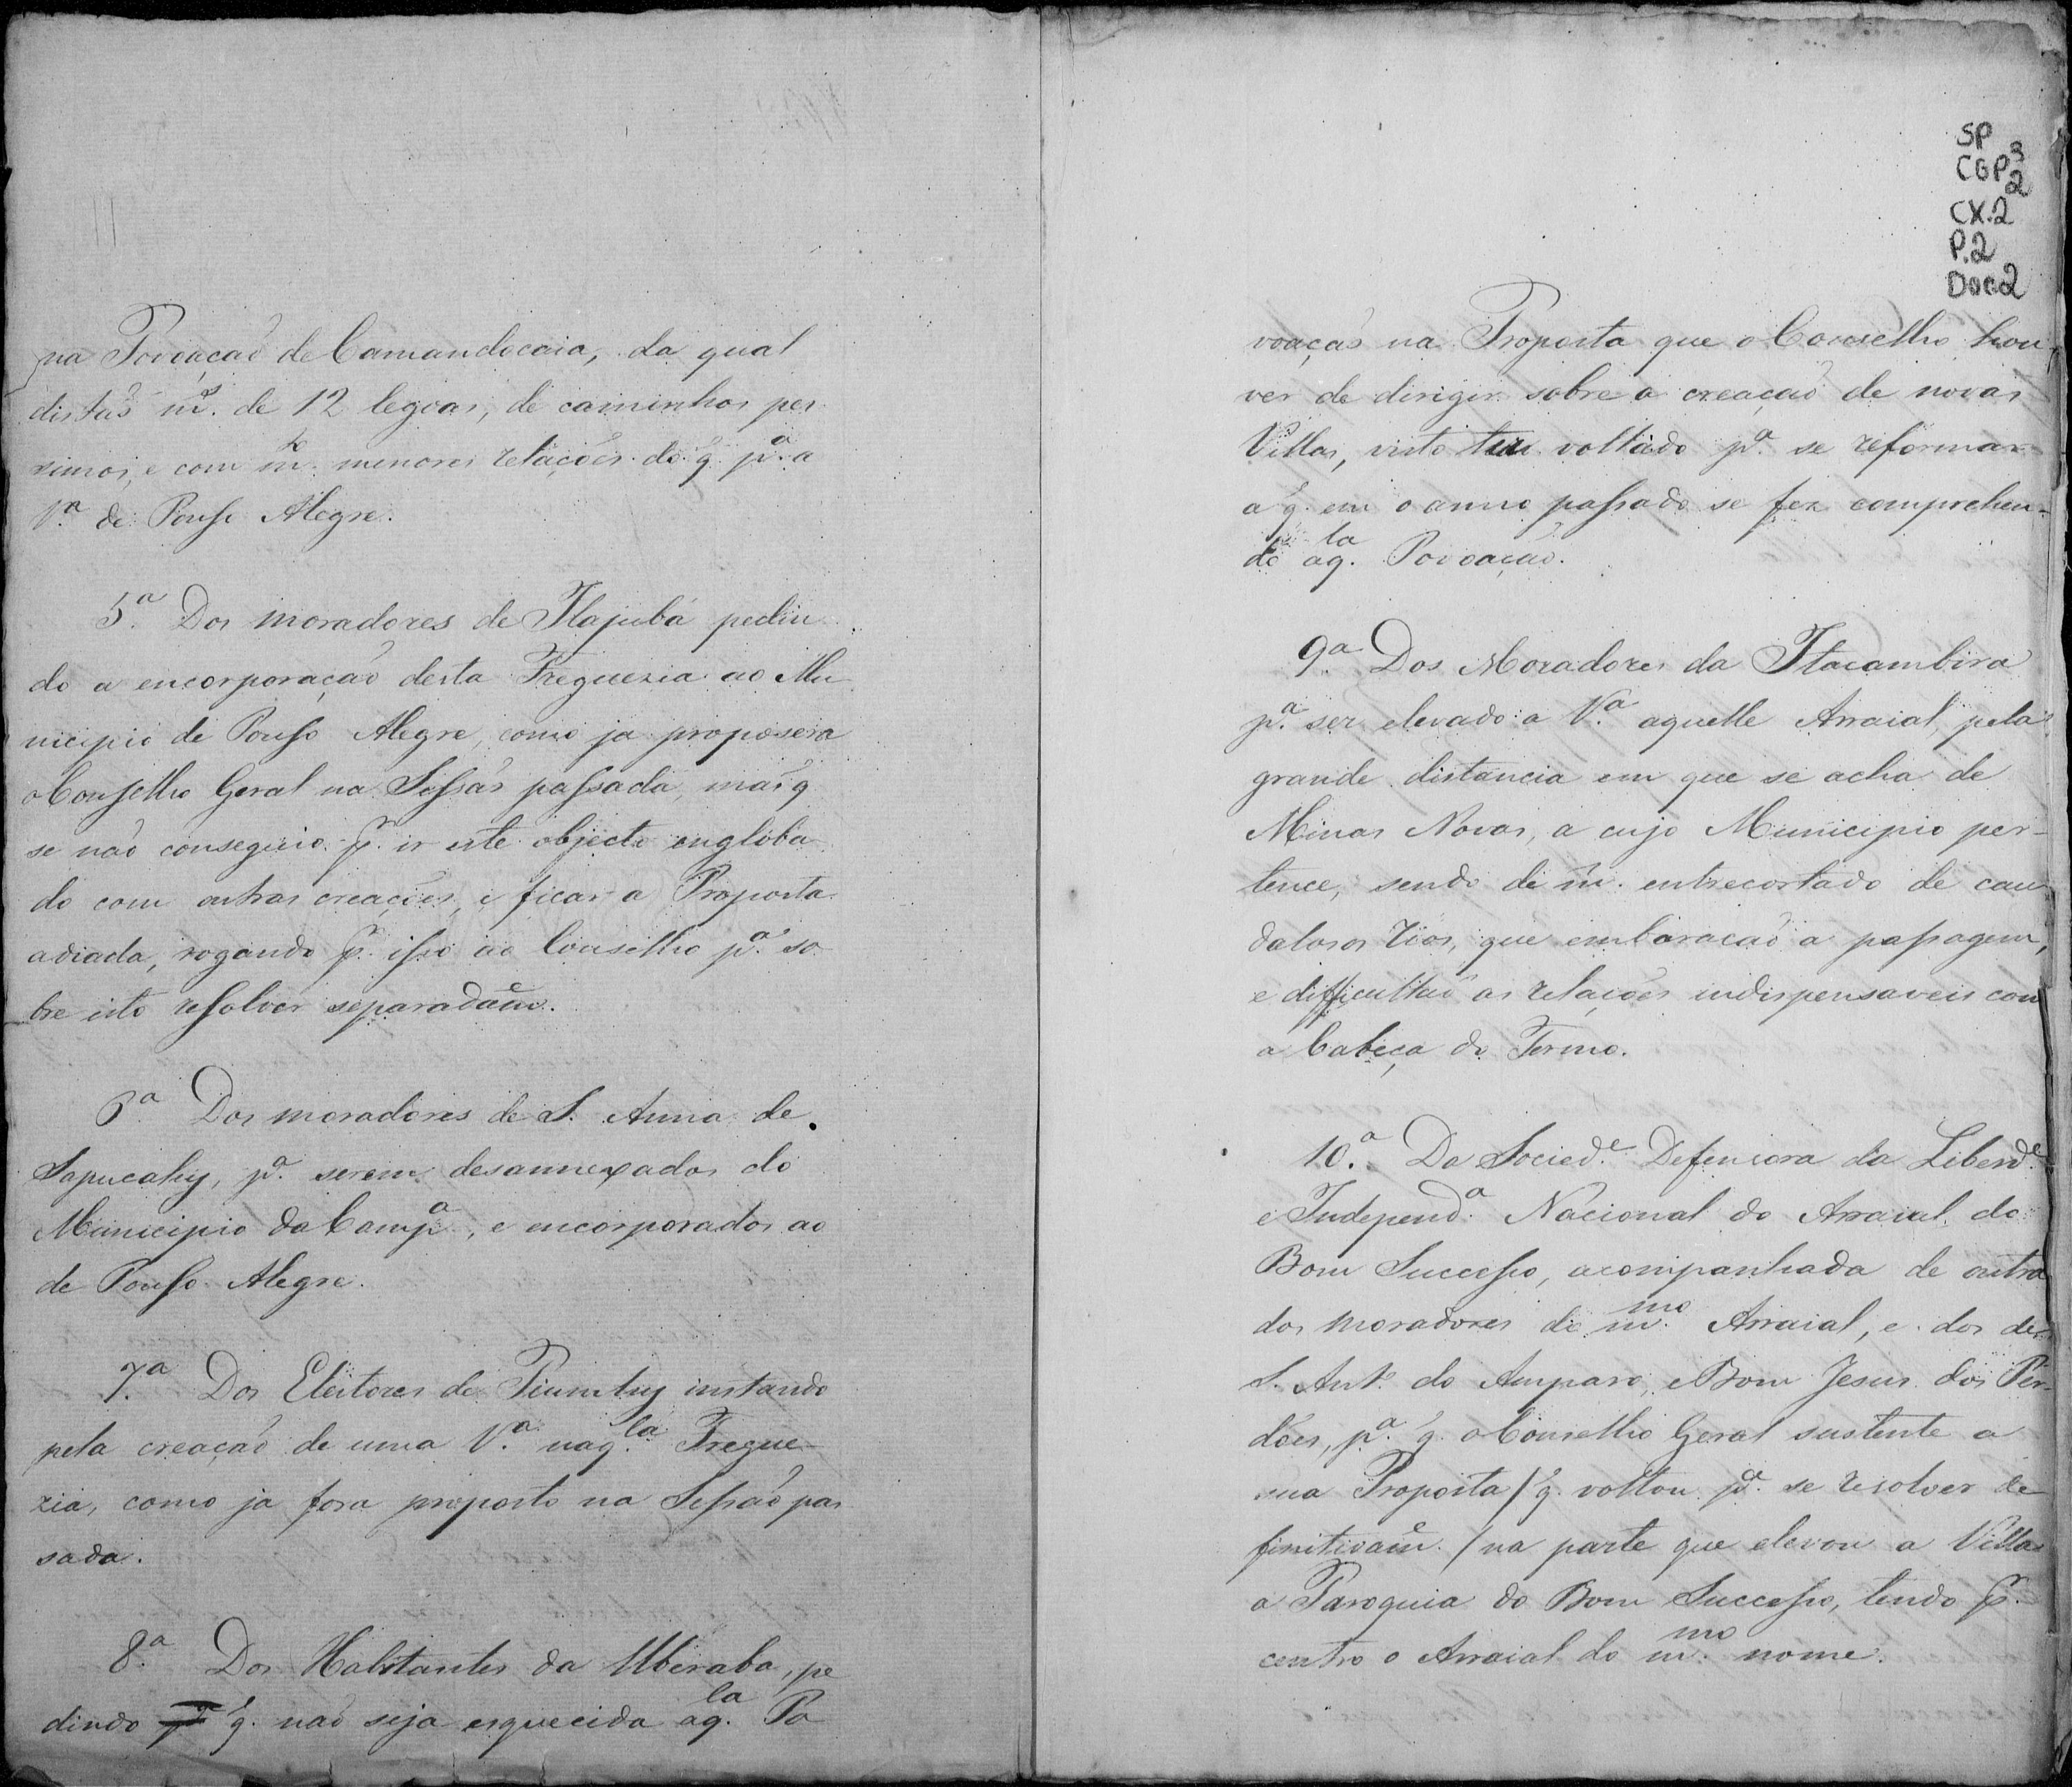 na Povoação de Camandocaia, da qual
distão m.s de 12 legoas, de caminhos pes
simos, e com m.to menores relações do q̃ p.a a
V.a de Pouso Alegre.
5.a Dos moradores de Itajubá pedin
do a encorporação desta Freguezia ao Mu
nicipio de Pouso Alegre, como ja proposera
o Conselho Geral na Sessão passada, mas q̃
se não conseguio p.r ir este objecto engloba
do com outras creações, e ficar a Proposta
adiada, rogando p.r isso ao Conselho p.a so
bre isto resolver separadam̃e.
6.a Dos moradores de S. Anna de
Sapucahy, p.a serem desannexados do
Municipio da Camp.a, e encorporados ao
de Pouso Alegre.
7.a Dos Eleitores de Piumhy instando
pela creação de uma V.a naq.la Fregue-
zia, como ja fora proposto na Sessão pas
sada.
8.a Dos Habitantes da Uberaba, pe
dindo q̃ não seja esquecida aq.la Po
SP
CGP 3
2
CX.2
P.2
Doc.2
voação na Proposta que o Conselho hou
ver de dirigir sobre a creação de novas
Villas, visto ter voltado p.a se reformar
a q̃ em o anno passado se fez comprehen-
do aq.la Povoação.
9.a Dos Moradores da Itacambira
p.a ser elevado a V.a aquelle Arraial, pela
grande distancia em que se acha de
Minas Novas, a cujo Municipio per-
tence, sendo de m. entrecortado de cau
dalosos rios, que embaração a passagem,
e difficultão as relações indispensaveis com
a Cabeça do Termo.
10.a Da Socied.e Defensora da Liberd.e
e Independ.a Nacional do Arraial do
Bom Successo, acompanhada de outra
dos moradores do m.mo Arraial, e dos de
S. Ant.o do Amparo, e Bom Jesus dos Per-
dões, p.a q̃ o Conselho Geral sustente a
sua Proposta / q̃ voltou p.a se resolver de
finitivam̃e / na parte que elevou a Villa
a Paroquia do Bom Successo, tendo p.r
centro o Arraial do m.mo nome.